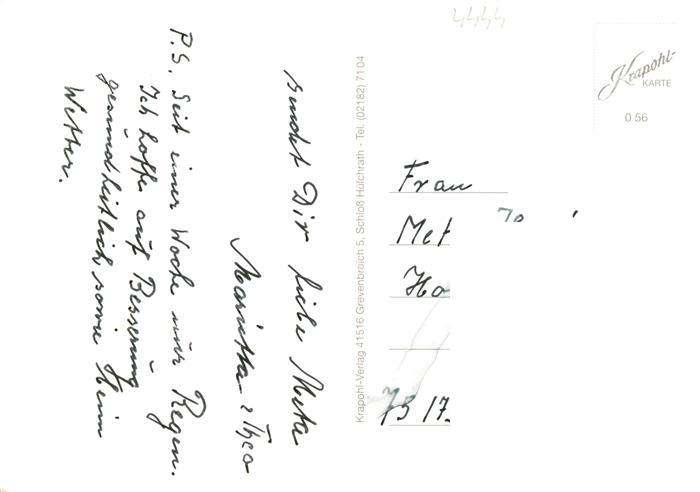 sendet Dir liebe Meta
Marietta & Theo
P.S. Seit einer Woche nur Regen.
Ich hoffe auf Besserung
gesundheitlich sowie beim
Wetter.
Krapohl-Verlag 41516 Grevenbroich 5, Schloß Hülchrath - Tel. (02182) 71 04
Krapohl-
KARTE
0 56
Frau
Met
Ho